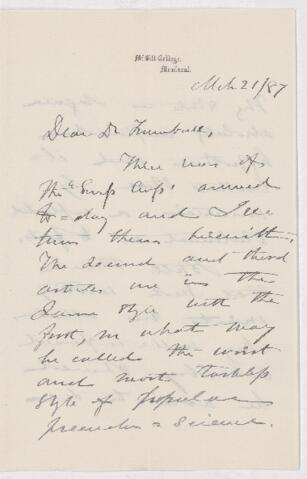 McGill College,
Montreal.
Mch 21/87
Dear Dr Trumbull,
Three nos of
"The Surp Cusp" arrived
to-day and I re-
turn them herewith.
The second and third
articles are in the
same style with the
first, in what may
be called the worst
and most tasteless
style of popular
science.